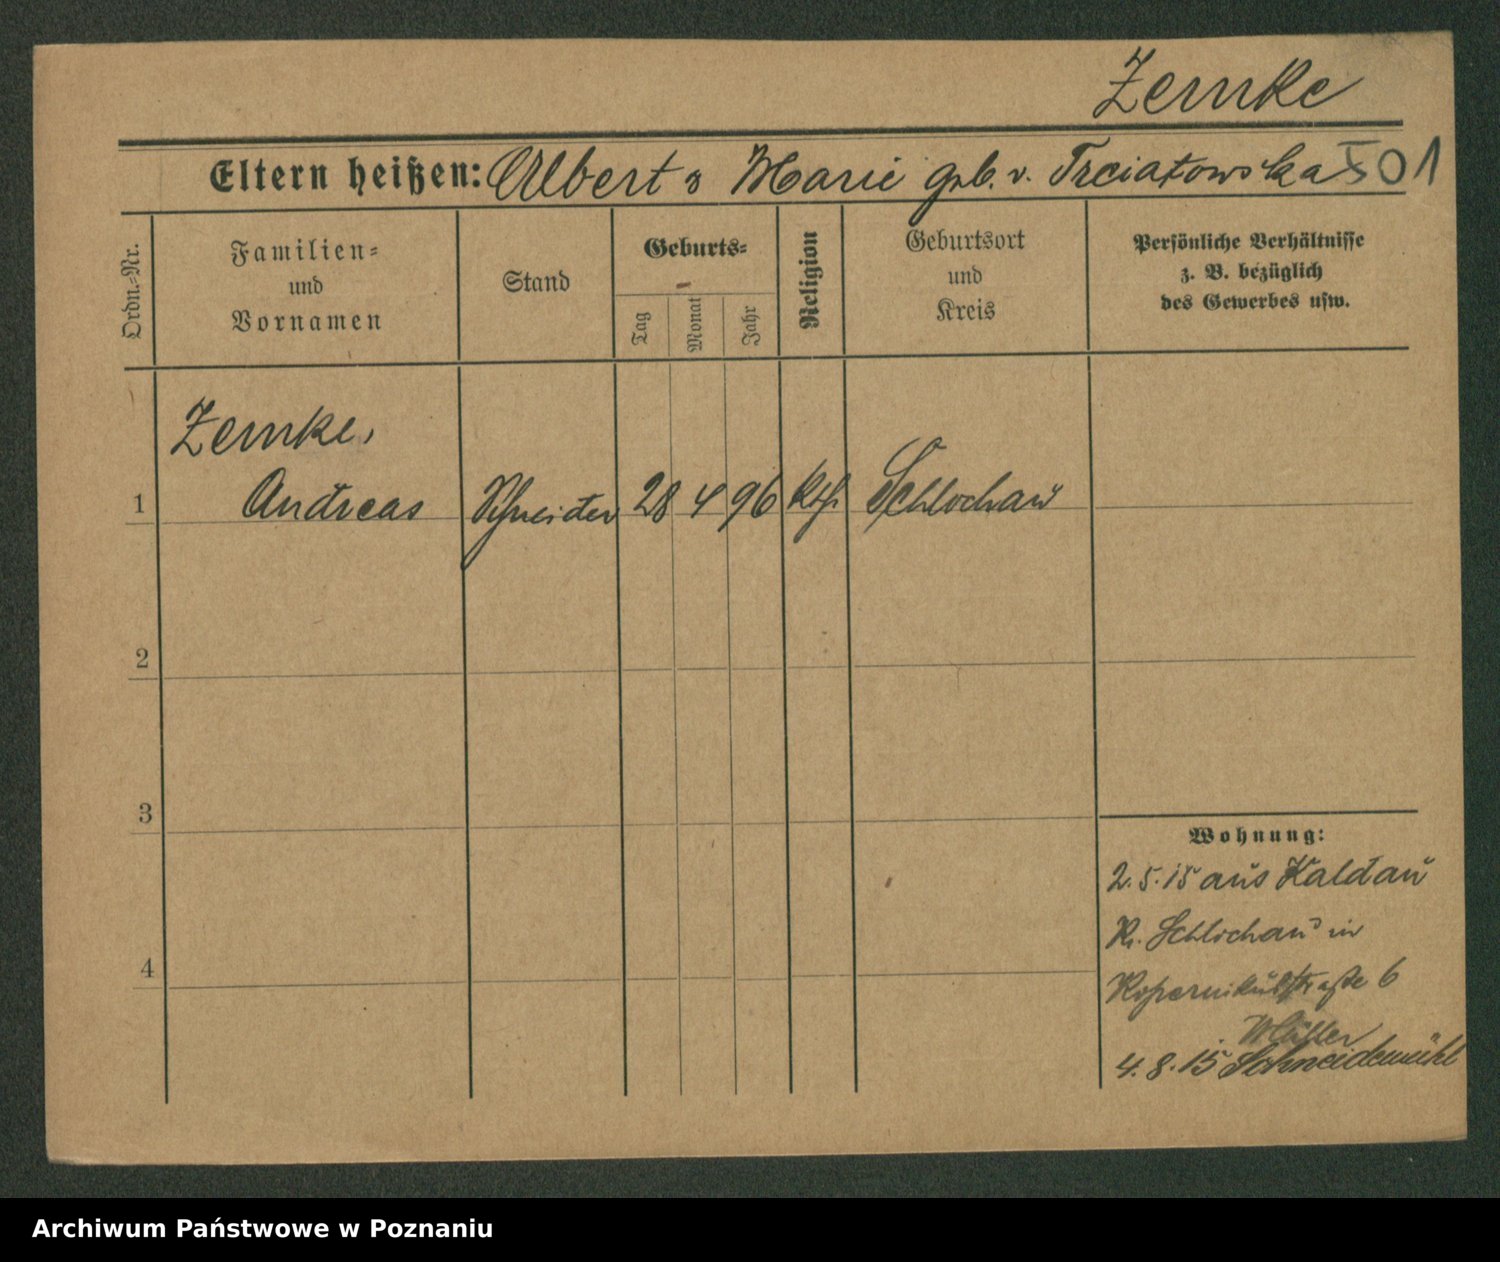 Zemke
Eltern heißen: Albert u Marie geb. v. Trciatowska 501
Ordn.-Nr.
Familien-
und
Vornamen
Stand
Geburts-
Tag
Monat
Jahr
Religion
Geburtsort
und
Kreis
Persönliche Verhältnisse
z. B. bezüglich
des Gewerbes usw.
Zemke,
1 Andreas Schneider 28 4 96 kth Schlochau
2
3
4
Wohnung:
2. 5. 15 aus Kaldau
Kr. Schlochau in
Kopernikusstraße 6
Müller
4. 8. 15 Schneidemühl
Archiwum Państwowe w Poznaniu